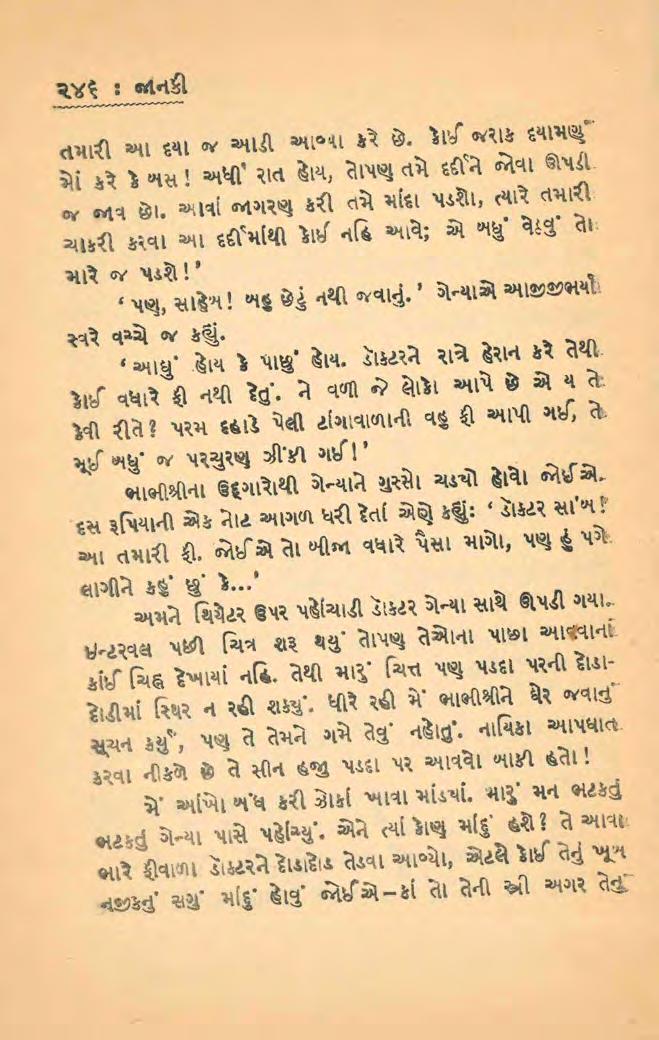 ૨૪૬ : જાનકી
તમારી આ દયા જ આડી આવ્યા કરે છે. કોઈ જરાક દયામણું
મોં કરે કે બસ! અધી રાત હોય, તોપણ તમે દર્દીને જોવા ઊપડી
જ જાવ છો. આવાં જાગરણ કરી તમે માંદા પડશો, ત્યારે તમારી
ચાકરી કરવા આ દર્દીમાંથી કોઈ નહિ આવે; એ બધું વેઠવું તો
મારે જ પડશે!'
‘ પણ, સાહેબ! બહુ છેટું નથી જવાનું.' ગેન્યાએ આજીજીભર્યા
સ્વરે વચ્ચે જ કહ્યું.
‘આધું હોય કે પાછું હોય. ડૉક્ટરને રાત્રે હેરાન કરે તેથી
કોઈ વધારે ફી નથી દેતું. ને વળી જે લોકો આપે છે એ ય તે
કેવી રીતે? પરમ દહાડે પેલી ટાંગાવાળાની વહુ ફી આપી ગઈ, તે
મૂઈ બધું જ પરચુરણ ઝીંકી ગઈ!'
ભાભીશ્રીના ઉદ્દગારોથી ગેન્યાને ગુસ્સો ચડયો હોવો જોઈએ.
દસ રૂપિયાની એક નોટ આગળ ધરી દેતાં એણે કહ્યું: ‘ ડૉક્ટર સા'બ!
આ તમારી ફી. જોઈએ તો બીજા વધારે પૈસા માગો, પણ હું પગે
લાગીને કહું છું કે...'
અમને થિયેટર ઉપર પહોંચાડી ડૉક્ટર ગેન્યા સાથે ઊપડી ગયા.
ઇન્ટરવલ પછી ચિત્ર શરૂ થયું તોપણ તેઓના પાછા આવવાનાં
કાંઈ ચિહ્ન દેખાયાં નહિ. તેથી મારું ચિત્ત પણ પડદા પરની દોડા-
દોડીમાં સ્થિર ન રહી શક્યું. ધીરે રહી મેં ભાભીશ્રીને ઘેર જવાનું
સૂચન કર્યું, પણ તે તેમને ગમે તેવું નહોતું. નાયિકા આપઘાત
કરવા નીકળે છે તે સીન હજુ પડદા પર આવવો બાકી હતો!
મેં આંખો બંધ કરી ઝોકાં ખાવા માંડયાં. મારું મન ભટકતું
ભટકતું ગેન્યા પાસે પહોંચ્યું. એને ત્યાં કોણ માંદું હશે? તે આવા
ભારે ફીવાળા ડૉક્ટરને દોડાદોડ તેડવા આવ્યો, એટલે કોઈ તેનું ખૂબ
નજીકનું સગું માંદું હોવું જોઈએ – કાં તો તેની સ્ત્રી અગર તેનું